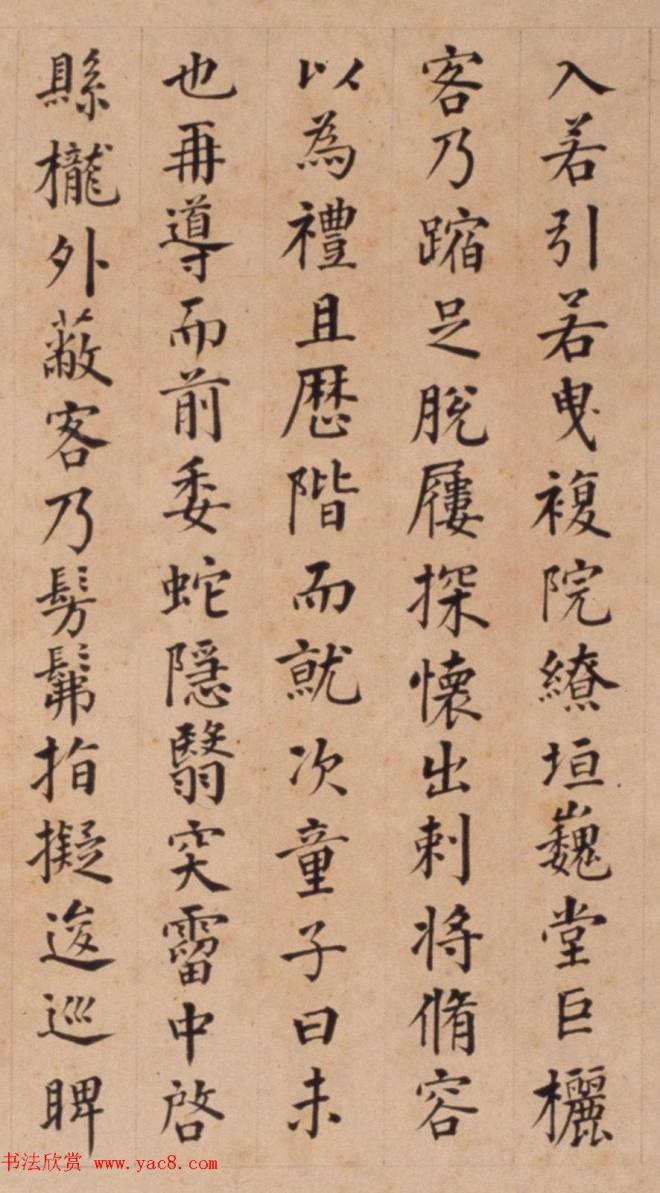 入若引若曳複院繚垣巍堂巨欐
客乃蹜足脫屨探懷出刺将脩容
以為禮且歷階而就次童子曰未
也再導而前委蛇隱翳突霤中啓
縣櫳外蔽客乃髣髴指擬逡巡睥
书法欣赏 www.yac8.com